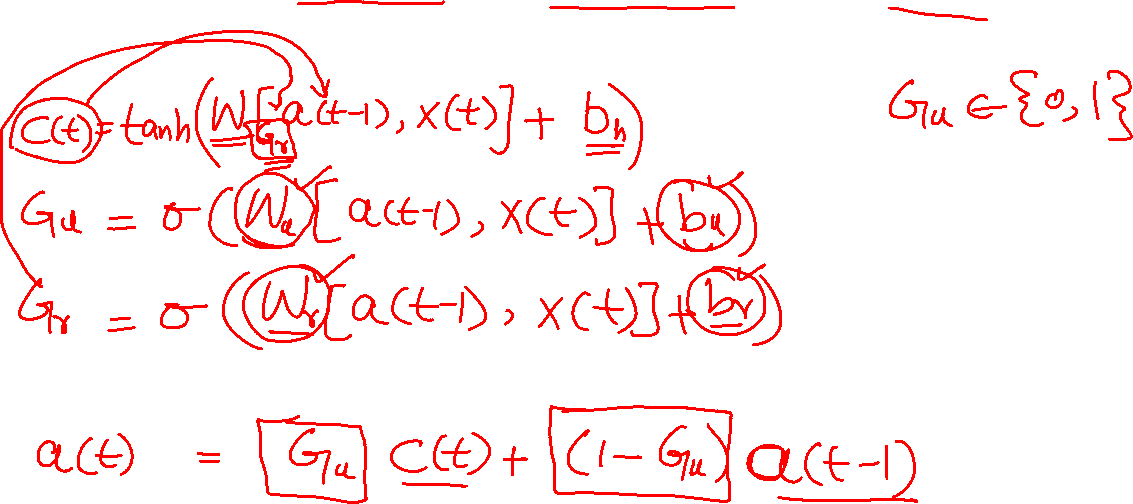 c(t) = tanh(W[Gr a(t-1), x(t)] + bh) Gu ∈ {0,1}
Gu = σ(Wu[a(t-1), x(t)] + bu)
Gr = σ((Wr[a(t-1), x(t)] + br))
a(t) = Gu c(t) + (1-Gu) a(t-1)